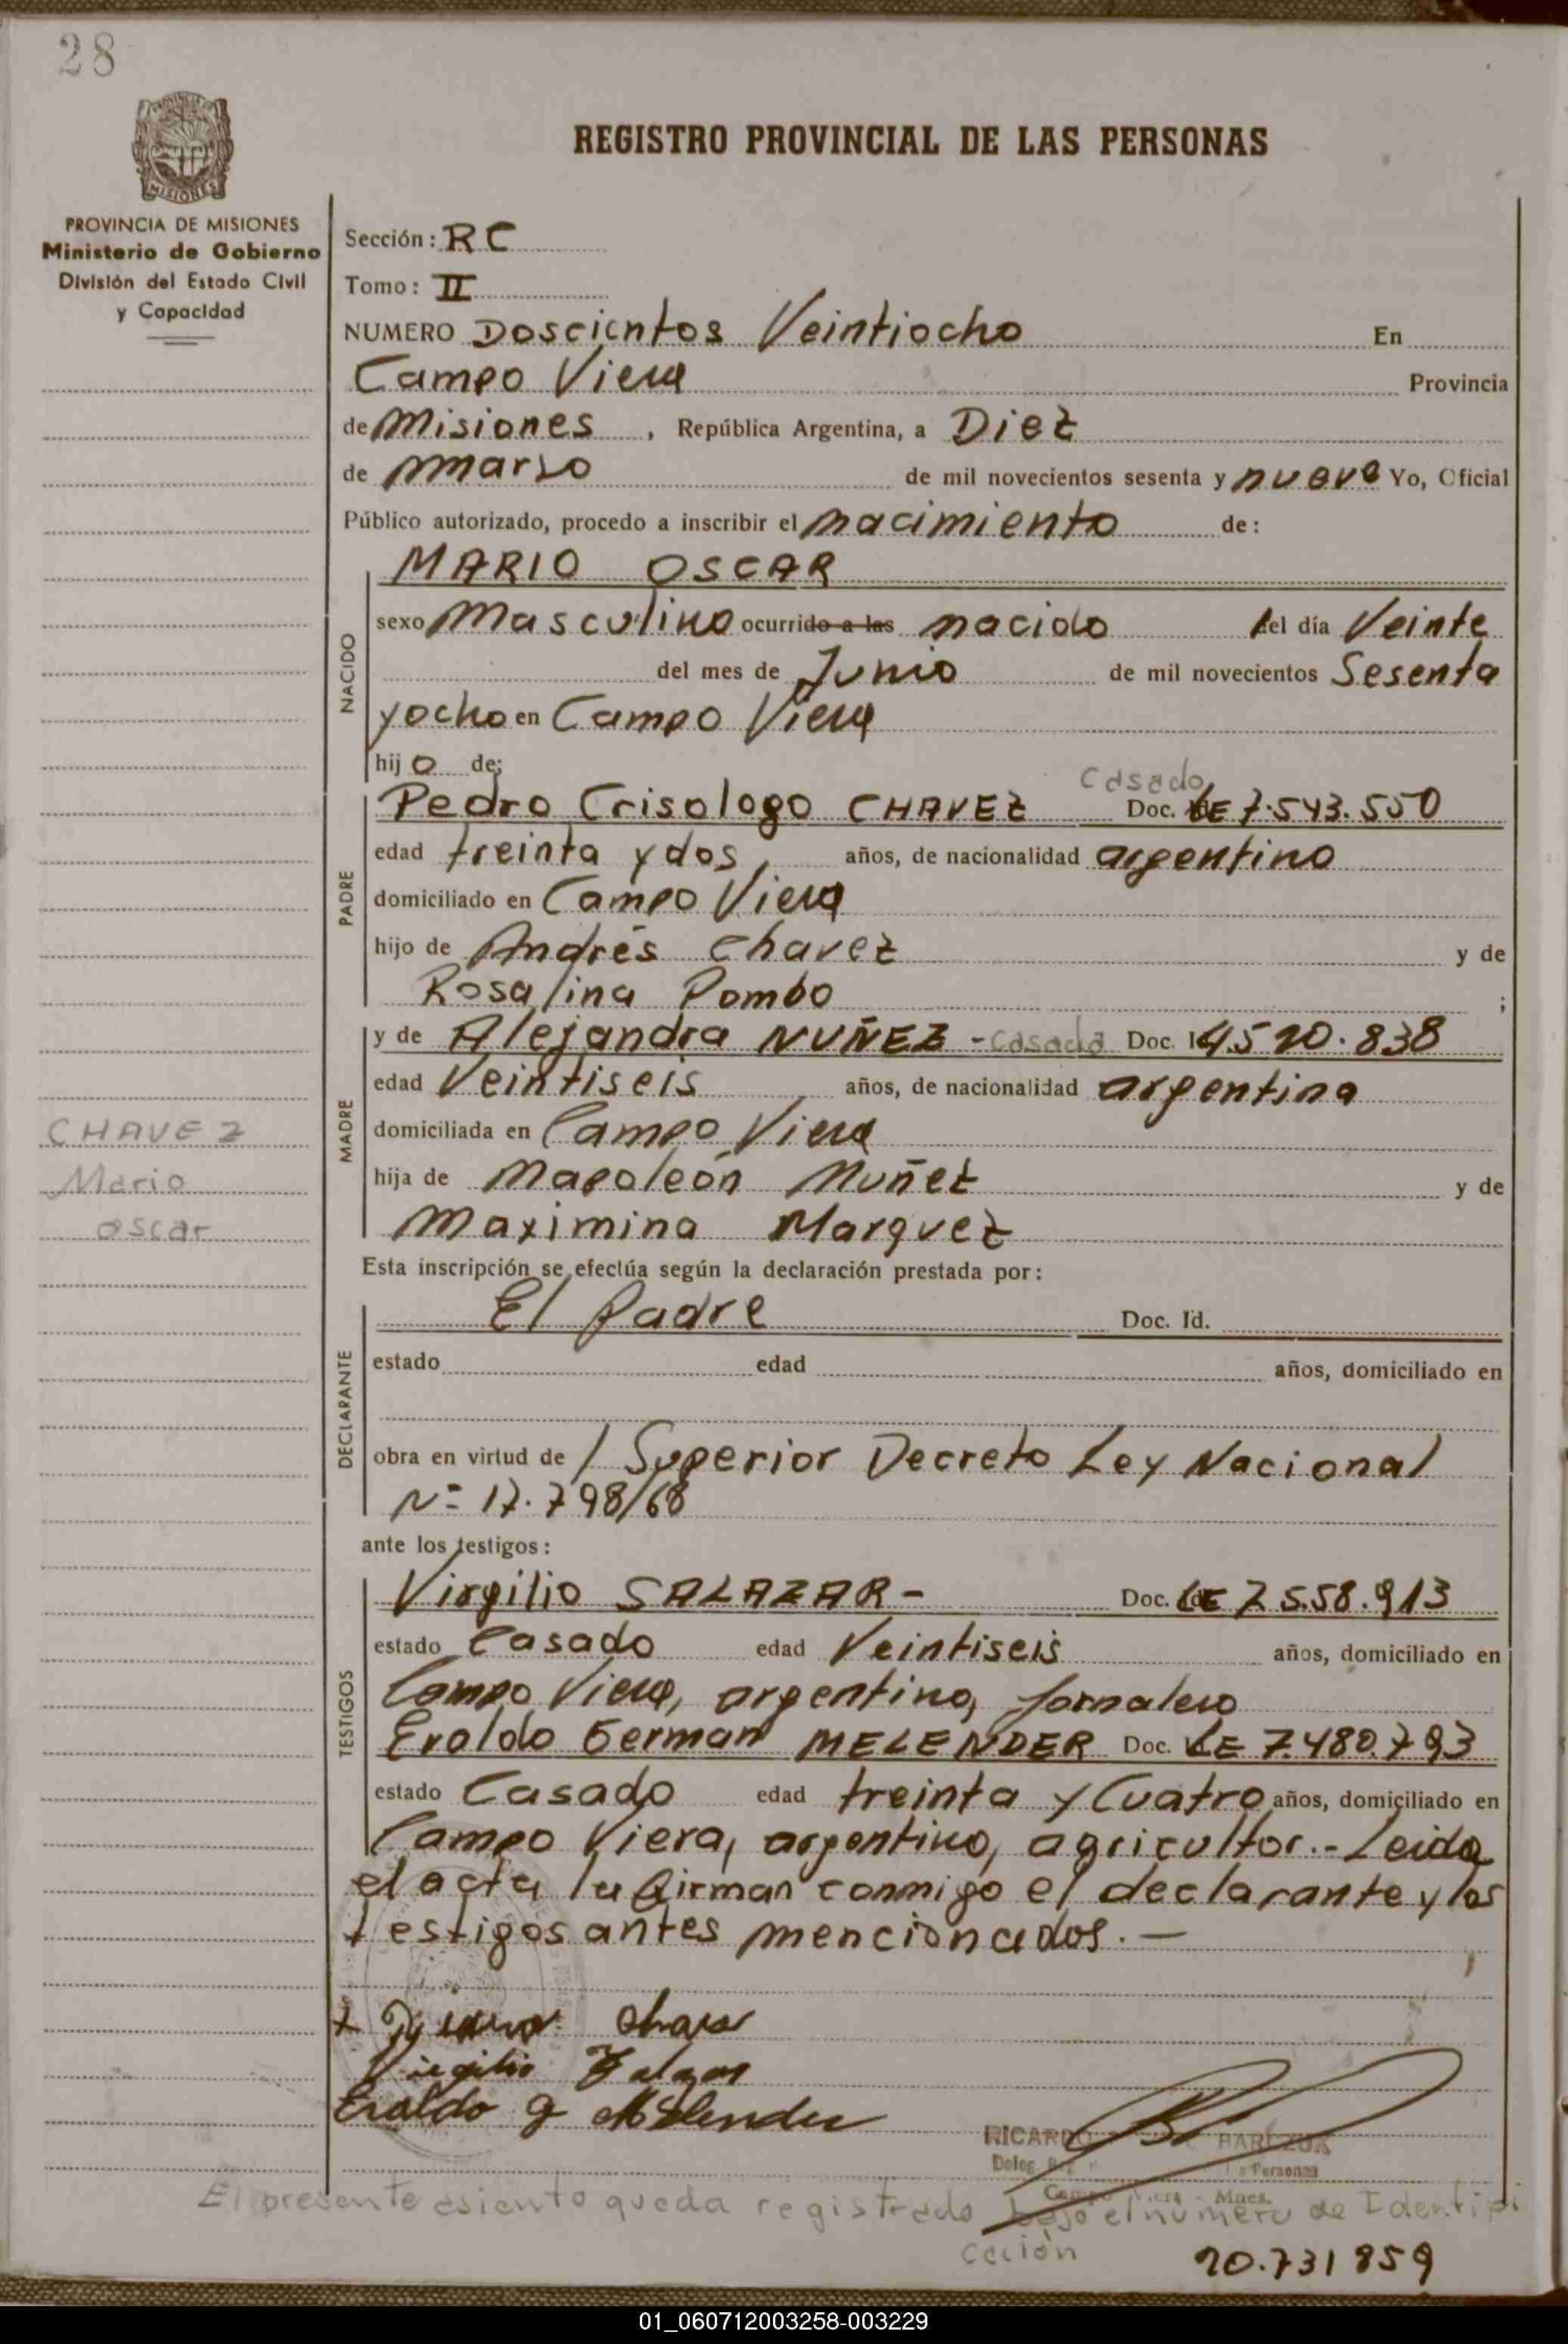 28
REGISTRO PROVINCIAL DE LAS PERSONAS
MISIONES
PROVINCIA DE MISIONES
Ministerio de Gobierno
División del Estado Civil
y Capacidad
Sección: RC
Tomo: II
NUMERO Doscientos Veintiocho En
Campo Viera Provincia
de Misiones, República Argentina, a Diez
de marzo de mil novecientos sesenta y nueve Yo, Oficial
Público autorizado, procedo a inscribir el nacimiento de:
MARIO OSCAR
NACIDO
sexo Masculino ocurrido a las nacido el día Veinte
del mes de Junio de mil novecientos Sesenta
y ocho en Campo Viera
hijo de;
Casado
PADRE
Pedro Crisologo CHAVEZ Doc. LE 7.543.550
edad treinta y dos, años, de nacionalidad argentino
domiciliado en Campo Viera
hijo de Andrés Chavez y de
Rosalina Pombo ;
MADRE
y de Alejandra NUÑEZ - casada Doc. 4.520.838
edad Veintiseis años, de nacionalidad argentina
domiciliada en Campo Viera
hija de Napoleón Nuñez y de
Maximina Marquez
CHAVEZ
Mario
oscar
Esta inscripción se efectúa según la declaración prestada por:
DECLARANTE
El Padre Doc. Id.
estado edad años, domiciliado en
obra en virtud de / Superior Decreto Ley Nacional
Nº 17.798/68
ante los testigos:
TESTIGOS
Virgilio SALAZAR - Doc. LE 7.558.913
estado Casado edad Veintiseis años, domiciliado en
Campo Viera, argentino, Jornalero
Eraldo German MELENDER Doc. LE 7.480.793
estado Casado edad treinta y Cuatro años, domiciliado en
Campo Viera, argentino, agricultor.- Leida
el acta la firman conmigo el declarante y los
testigos antes mencionados. -
Virgilio Zalazar
Eraldo g Melender
RICARDO
Deleg. Personas
Campo Viera - Mnes.
El presente asiento queda registrado bajo el numero de Identifi
cación
20.731859
01_060712003258-003229